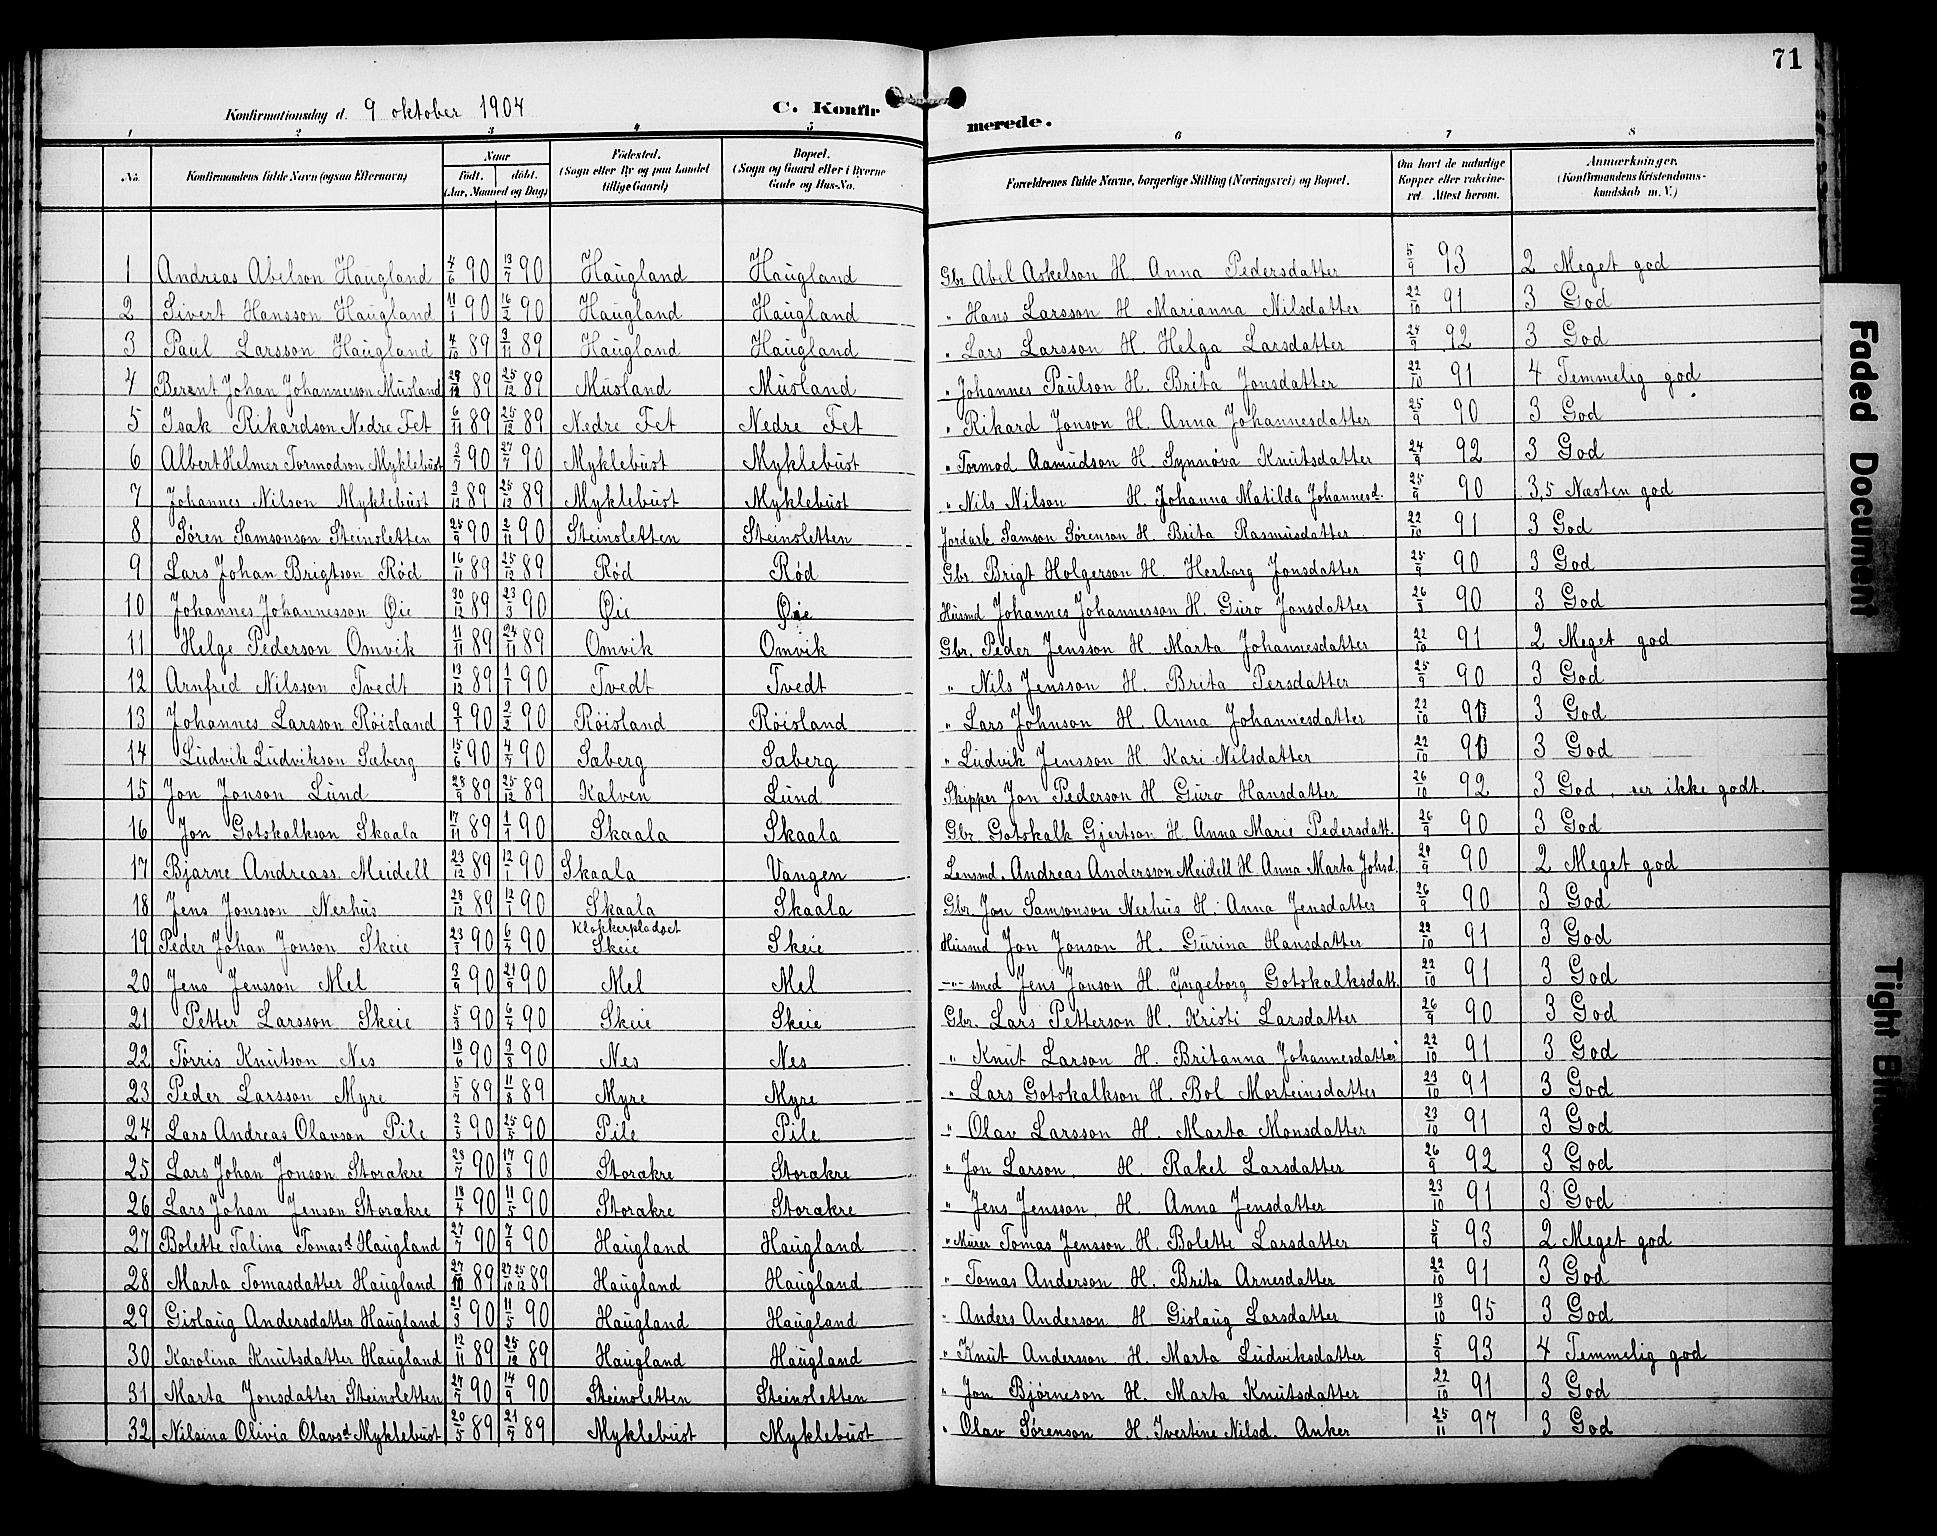 71
Konfirmationsdag d. 9 oktober 1904 C. Konfirmerede.
1 2 3 4 5 6 7 8
No. Konfirmandens fulde Navn (ogsaa Efternavn) Naar Födt. döbt. (Aar, Maaned og Dag) Födested. (Sogn eller By og paa Landet tillige Gaard) Bopæl. (Sogn og Gaard eller i Byerne Gade og Hus-No. Forældrenes fulde Navne, borgerlige Stilling (Næringsvei) og Bopæl. Om havt de naturlige Kopper eller vakcineret Attest herom. Anmærkninger. (Konfirmandens Kristendomskundskab m. V.)
1 Andreas Abelson Haugland 4/6 90 13/7 90 Haugland Haugland Gbr. Abel Askelson H. Anna Pedersdatter 5/9 93 2 Meget god
2 Sivert Hansson Haugland 11/1 90 16/2 90 Haugland Haugland " Hans Larsson H Marianna Nilsdatter 22/10 91 3 God
3 Paul Larsson Haugland 4/10 89 3/11 89 Haugland Haugland " Lars Larsson H. Helga Larsdatter 24/9 92 3 God
4 Berent Johan Johannesson Musland 89 25/12 89 Musland Musland " Johannes Paulson H. Brita Jonsdatter 22/10 91 4 Temmelig god
5 Isak Rikardson Nedre Fet 6/11 89 25/12 89 Nedre Fet Nedre Fet " Rikard Jonson H. Anna Johannesdatter 25/9 90 3 God
6 Albert Helmer Tormodson Myklebust 3/7 90 27/7 90 Myklebust Myklebust " Tormod Aamudson H. Synnøva Knutsdatter 24/9 92 3 God
7 Johannes Nilson Myklebust 3/12 89 25/12 89 Myklebust Myklebust " Nils Nilson H. Johanna Matilda Johannesd. 25/9 90 3,5 Næsten god
8 Søren Samsonson Steinsletten 25/9 90 2/11 90 Steinsletten Steinsletten Jordarb. Samson Sørenson H. Brita Rasmusdatter 22/10 91 3 God
9 Lars Johan Brigtson Rød 16/11 89 25/12 89 Rød Rød Gbr. Brigt Holgerson H. Herborg Jonsdatter 25/9 90 3 God
10 Johannes Johannesson Øie 30/12 89 23/3 90 Øie Øie Husmd Johannes Johannesson H. Guro Jonsdatter 26/8 90 3 God
11 Helge Pederson Omvik 11/11 89 24/11 89 Omvik Omvik Gbr. Peder Jensson H. Marta Johannesdatter 22/10 91 2 Meget god
12 Arnfred Nilsson Tvedt 13/12 89 1/1 90 Tvedt Tvedt " Nils Jensson H. Brita Persdatter 25/9 90 3 God
13 Johannes Larsson Røisland 9/1 90 2/2 90 Røisland Røisland " Lars Johnson H. Anna Johannesdatter 22/10 3 God
14 Ludvik Ludvikson Sæberg 15/6 90 4/7 90 Sæberg Sæberg " Ludvik Jensson H. Kari Nilsdatter 22/10 3 God
15 Jon Jonson Lund 28/9 89 25/12 89 Kalven Lund Skipper Jon Pederson H. Guro Hansdatter 26/10 92 3 God, ser ikke godt.
16 Jon Gotskalkson Skaala 17/11 89 1/1 90 Skaala Skaala Gbr. Gotskalk Gjertson H. Anna Marie Pedersdatt. 26/9 90 3 God
17 Bjarne Andreass. Meidell 23/12 89 12/1 90 Skaala Vangen Lensmd. Andreas Andersson Meidell H Anna Marta Johsd. 90 2 Meget god
18 Jens Jonsson Nerhus 28/12 89 12/1 90 Skaala Skaala Gbr. Jon Samsonson Nerhus H. Anna Jensdatter 26/9 90 3 God
19 Peder Johan Jonson Skeie 23/3 90 6/4 90 Klokkerpladset Skeie Skeie Husmd Jon Jonson H. Gurina Hansdatter 22/10 91 3 God
20 Jens Jensson Mel 3/9 90 21/9 90 Mel Mel -"- smed Jens Jonson H. Ingeborg Gotskalksdatt. 22/10 91 3 God
21 Petter Larsson Skeie 5/3 90 6/4 90 Skeie Skeie Gbr. Lars Petterson H. Kristi Larsdatter 26/9 90 3 God
22 Tørris Knutson Nes 18/6 90 3/8 90 Nes Nes " Knut Larson H. Britanna Johannesdatter 22/10 91 3 God
23 Peder Larsson Myre 5/7 89 11/8 89 Myre Myre " Lars Gotskalkson H. Bol Morteinsdatter 23/10 91 3 God
24 Lars Andreas Olavson Pile 2/5 90 25/5 90 Pile Pile " Olav Larsson H. Marta Monsdatter 23/10 91 3 God
25 Lars Johan Jonson Storakre 23/7 90 17/8 90 Storakre Storakre " Jon Larson, H. Rakel Larsdatter 26/9 92 3 God
26 Lars Johan Jenson Storakre 18/4 90 11/5 90 Storakre Storakre " Jens Jensson, H. Anna Jensdatter 23/10 91 3 God
27 Bolette Talina Tomasd Haugland 27/7 90 7/9 90 Haugland Haugland " Murer Tomas Jensson H. Bolette Larsdatter 5/9 93 2 Meget god
28 Marta Tomasdatter Haugland 27/10 89 27/10 25/12 89 Haugland Haugland " Tomas Anderson H. Brita Arnesdatter 22/10 91 3 God
29 Gislaug Andersdatter Haugland 21/3 90 11/5 90 Haugland Haugland " Anders Anderson H Gislaug Larsdatter 18/10 95 3 God
30 Karolina Knutsdatter Haugland 12/11 89 25/12 89 Haugland Haugland " Knut Andersson H. Marta Ludviksdatter 5/9 93 4 Temmelig god
31 Marta Jonsdatter Steinsletten 27/7 90 14/9 90 Steinsletten Steinsletten " Jon Bjørneson H. Marta Knutsdatter 22/10 91 3 God
32 Nilsina Olivia Olavsd Myklebust 20/5 89 21/7 89 Myklebust Myklebust " Olav Sørenson H. Ivertine Nilsd. Anker 25/11 97 3 God
Faded Document
Tight